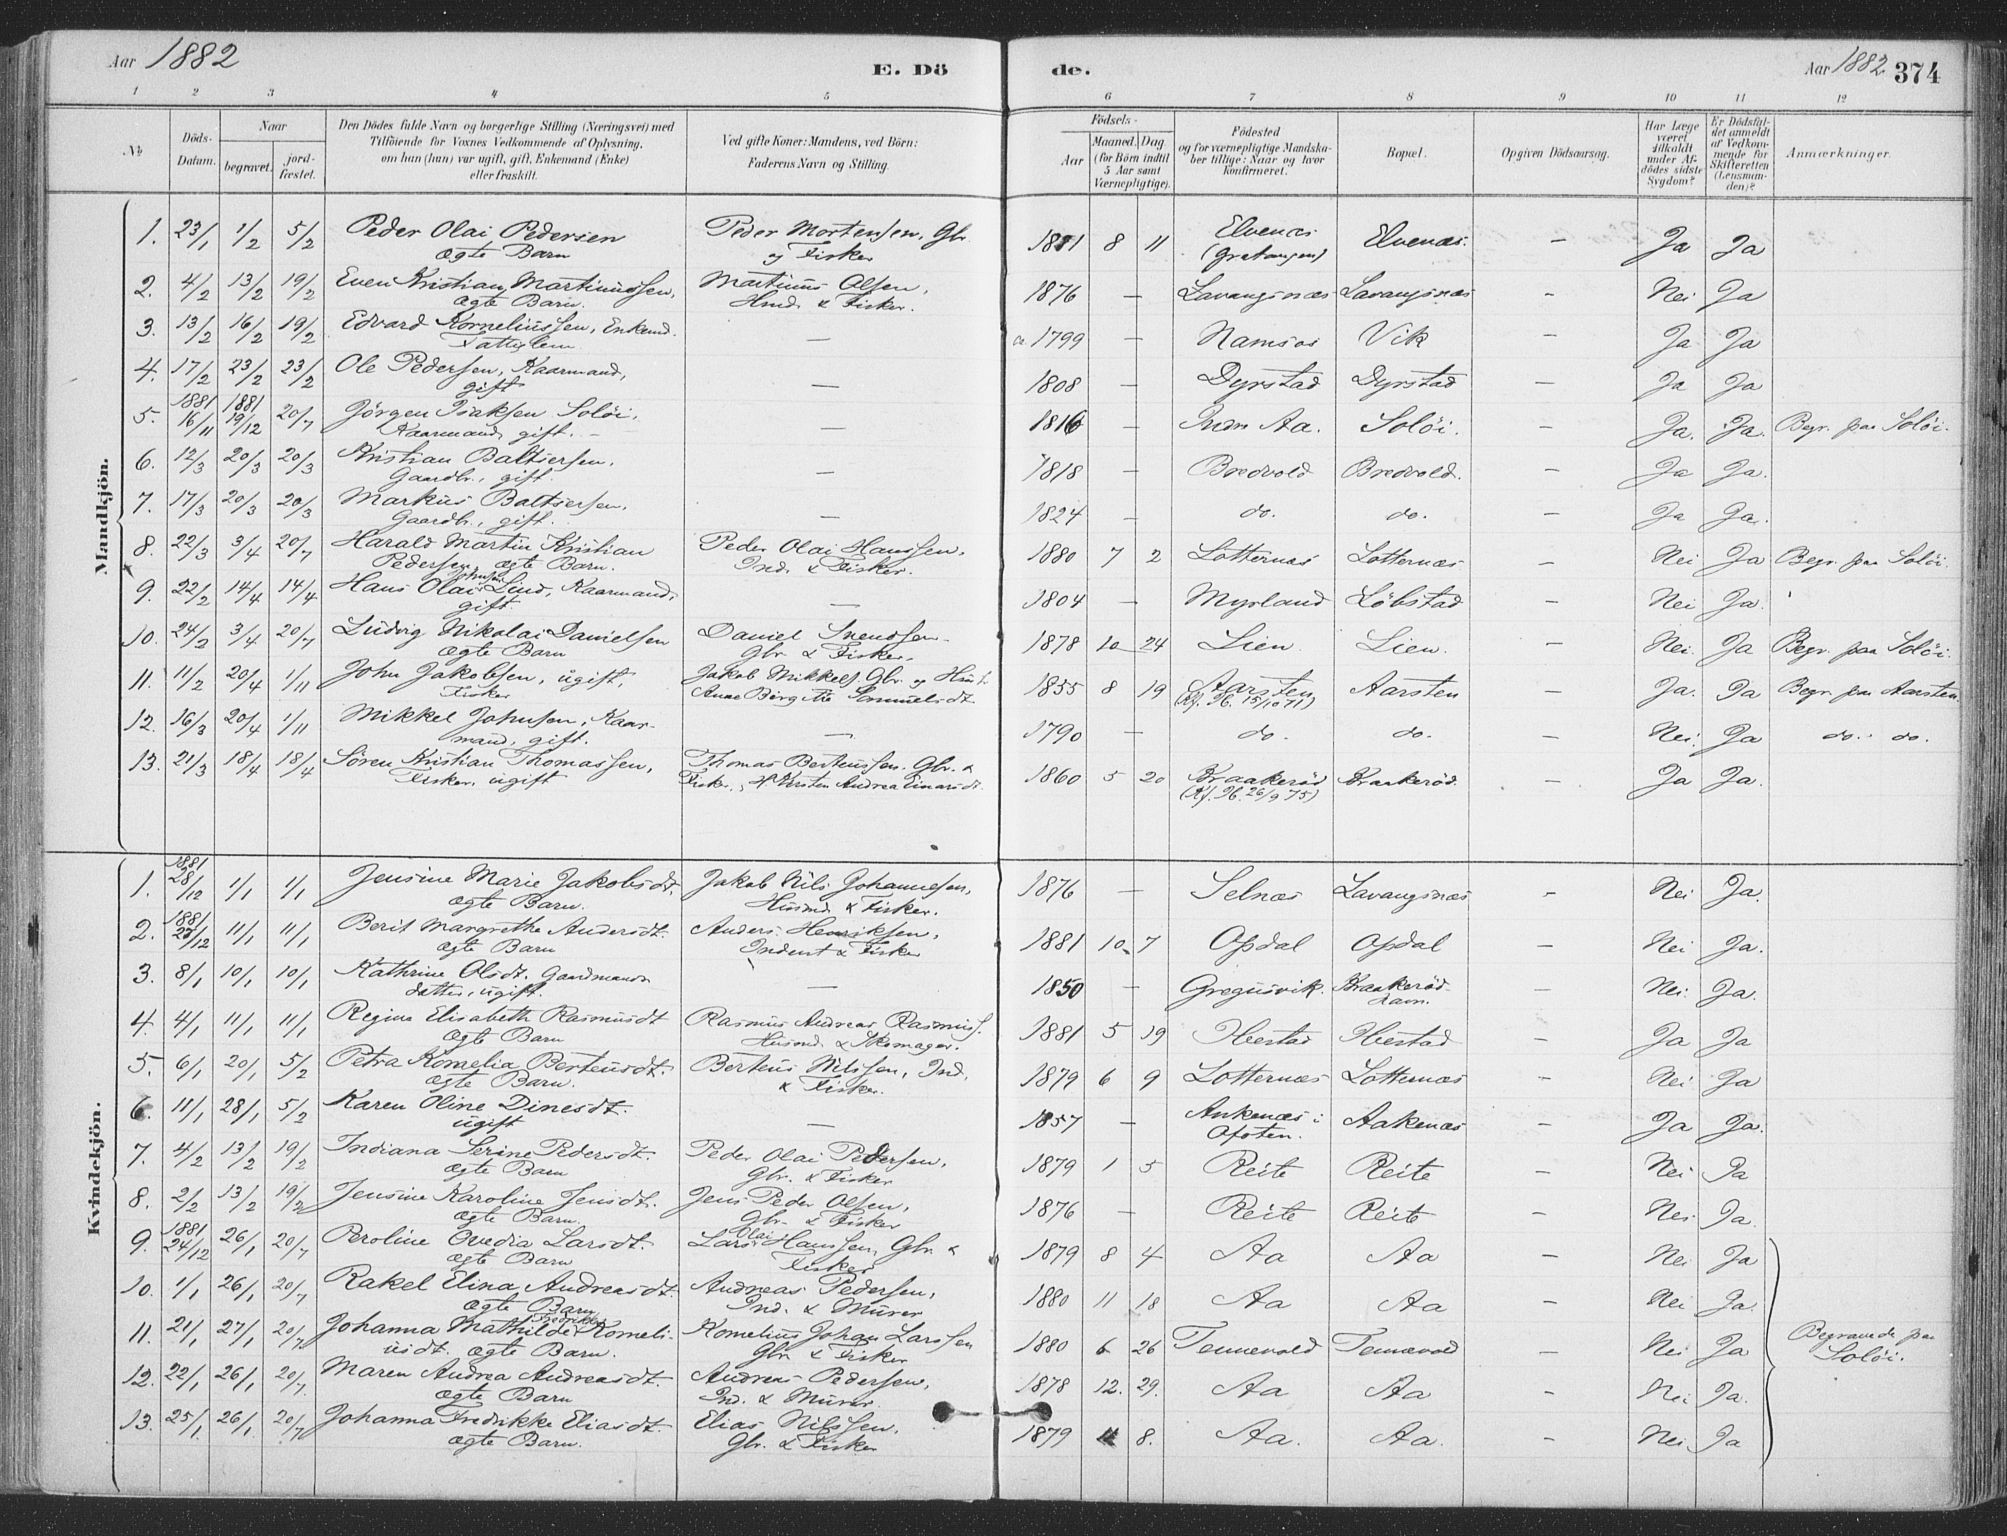 Aar 1882
E. Dö
de.
Aar 1882
374
1 2 3 4 5 6 7 8 9 10 11 12
№
Döds-Datum.
Naar
begravet.
jord-fæstet.
Den Dödes fulde Navn og borgerlige Stilling (Næringsvei) med
Tilföiende for Voxnes Vedkommende af Oplysning,
om han (hun) var ugift, gift, Enkemand (Enke)
eller fraskilt.
Ved gifte Koner: Mandens, ved Börn:
Faderens Navn og Stilling.
Födsels-
Aar
Maaned. Dag
(for Börn indtil
5 Aar samt
Værnepligtige).
Födested
og for værnepligtige Mandska-
ber tillige: Naar og hvor
konfirmeret.
Bopæl.
Opgiven Dödsaarsag.
Har Læge
været
tilkaldt
under Af-
dödes sidste
Sygdom?
Er Dödsfal-
det anmeldt
af Vedkom-
mende for
Skifteretten
(Lensman-
den)?
Anmærkninger.
Mandkjön.
1. 23/1 1/2 5/2 Peder Olai Pedersen Peder Mortensen, Gbr. 1881 8 11 Elvenæs Elvenæs. — Ja Ja
ægte Barn og Fisker (Gratangen)
2. 4/2 13/2 19/2 Even Kristian Martinussen, Martinus Olsen, 1876 — Lavangsnæs Lavangsnæs — Nei Ja
ægte Barn. Husmd. & Fisker.
3. 13/2 16/2 19/2 Edvard Korneliussen, Enkemd. — ca. 1799 — Namsos Vik — Ja Ja
Fattiglem
4. 17/2 23/2 23/2 Ole Pedersen, Kaarmand, — 1808 — Dyrstad Dyrstad — Ja Ja
gift
5. 1881 16/11 1881 19/12 20/7 Jörgen Isaksen Solöi, — 1816 — Indre Aa. Solöi. — Ja. Ja. Begr. paa Solöi.
Kaarmand, gift.
6. 12/3 20/3 20/3 Kristian Baltsersen, — 1818 — Bredvold Bredvold. — Ja Ja.
Gaardbr., gift.
7. 17/3 20/3 20/3 Markus Baltsersen, — 1824 — do. do. — Ja Ja.
Gaardbr., gift.
8. 22/3 3/4 20/7 Harald Martin Kristian Peder Olai Hanssen, 1880 7 2 Lotternæs Lotternæs — Nei Ja Begr. paa Solöi.
Pedersen, ægte Barn. Ind. & Fisker.
9. 22/2 14/4 14/4 Hans Olai Johnsen Lind, Kaarmand, — 1804 — Myrland Löbstad — Nei Ja.
gift
10. 24/2 3/4 20/7 Ludvig Nikolai Danielsen Daniel Svendsen 1878 10 24 Lien. Lien. — Nei. Ja Begr. paa Solöi.
ægte Barn Gbr. & Fisker.
11. 11/2 20/4 1/11 John Jakobsen, ugift, Jakob Mikkels. Gbr. og Hust. 1855 8 19 Aarsten Aarsten — Ja. Ja Begr. paa Aarsten
Fisker Anne Birgitte Samuelsdt. (Kf. Ib. 15/10 71)
12. 16/3 20/4 1/11 Mikkel Johnsen, Kaar- — 1790 — do. do. — Nei. Ja do. do.
mand, gift.
13. 21/3 18/4 18/4 Sören Kristian Thomassen, Thomas Berteussen. Gbr. & 1860 5 20 Kraakeröd Kraakeröd — Ja Ja.
Fisker, ugift Fisker, H. Kirsten Andrea Einarsdt. (Kf. Ib. 26/9 75)
Kvindekjön.
1. 1881 28/12 1/1 1/1 Jensine Marie Jakobsdt. Jakob Nils Johannesen, 1876 — Selnæs Lavangsnæs — Nei Ja.
ægte Barn. Husmd. & Fisker.
2. 1881 28/12 11/1 11/1 Berit Margrethe Andersdt. Anders Henriksen, 1881 10 7 Opdal Opdal — Nei Ja.
ægte Barn Inderst & Fisker
3. 8/1 10/1 10/1 Kathrine Olsdt. Gaardmands — 1850 — Gregusvik. Kraakeröd- — Nei. Ja.
datter, ugift. havn.
4. 4/1 11/1 11/1 Regina Elisabeth Rasmusdt Rasmus Andreas Rasmuss. 1881 5 19 Ibestad Ibestad — Ja Ja
ægte Barn Husmd. & Skomager.
5. 6/1 20/1 5/2 Petra Kornelia Berteusdt. Berteus Nilssen, Ind. 1879 6 9 Lotternæs Lotternæs — Nei Ja
ægte Barn. & Fisker.
6. 11/1 28/1 5/2 Karen Oline Dinesdt. — 1857 — Ankenæs i Aakenæs — Ja Ja.
ugift Ofoten.
7. 4/2 13/2 19/2 Indiana Serine Pedersdt. Peder Olai Pedersen, 1879 1 5 Reite Reite — Nei Ja
ægte Barn Gbr. & Fisker
8. 2/2 13/2 19/2 Jensine Karoline Jensdt. Jens Peder Olsen, 1876 — Reite Reite — Nei Ja.
ægte Barn. Gbr. & Fisker
9. 1881 24/12 26/1 20/7 Peroline Ovedia Larsdt. Lars Olai Hanssen, Gbr. & 1879 8 4 Aa Aa — Nei Ja
ægte Barn Fisker
10. 1/1 26/1 20/7 Rakel Elina Andreasdt. Andreas Pedersen, 1880 11 18 Aa Aa — Nei Ja.
ægte Barn Ind. & Murer
11. 21/1 27/1 20/7 Johanna Mathilde Fredrikke Korneli- Kornelius Johan Larssen 1880 6 26 Tennevold Tennevold — Nei Ja Begravede paa
usdt. ægte Barn. Gbr. & Fisker Solöi.
12. 22/1 26/1 20/7 Maren Andrea Andreasdt. Andreas Pedersen, 1878 12. 29. Aa Aa — Nei Ja.
ægte Barn Ind. & Murer.
13. 25/1 26/1 20/7 Johanna Fredrikke Eliasdt. Elias Nilssen, 1879 8. Aa. Aa. — Nei Ja
ægte Barn. Gbr. & Fisker